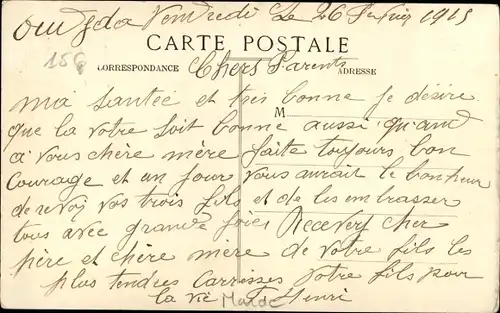 Oujda Vendredi Le 26 Fevrier 1915
CARTE POSTALE
156
CORRESPONDANCE Chers Parents ADRESSE
ma santée et tres bonne je désire
M
que la votre soit bonne aussi quand
a vous chère mère faite toujours bon
Courage et un jour vous aurait le bonheur
de revoj vos trois fils et de les embrasser
tous avec grande joies Recevery cher
père et chère mère de votre fils les
plus tendres Carrisses votre fils pour
la vie Henri